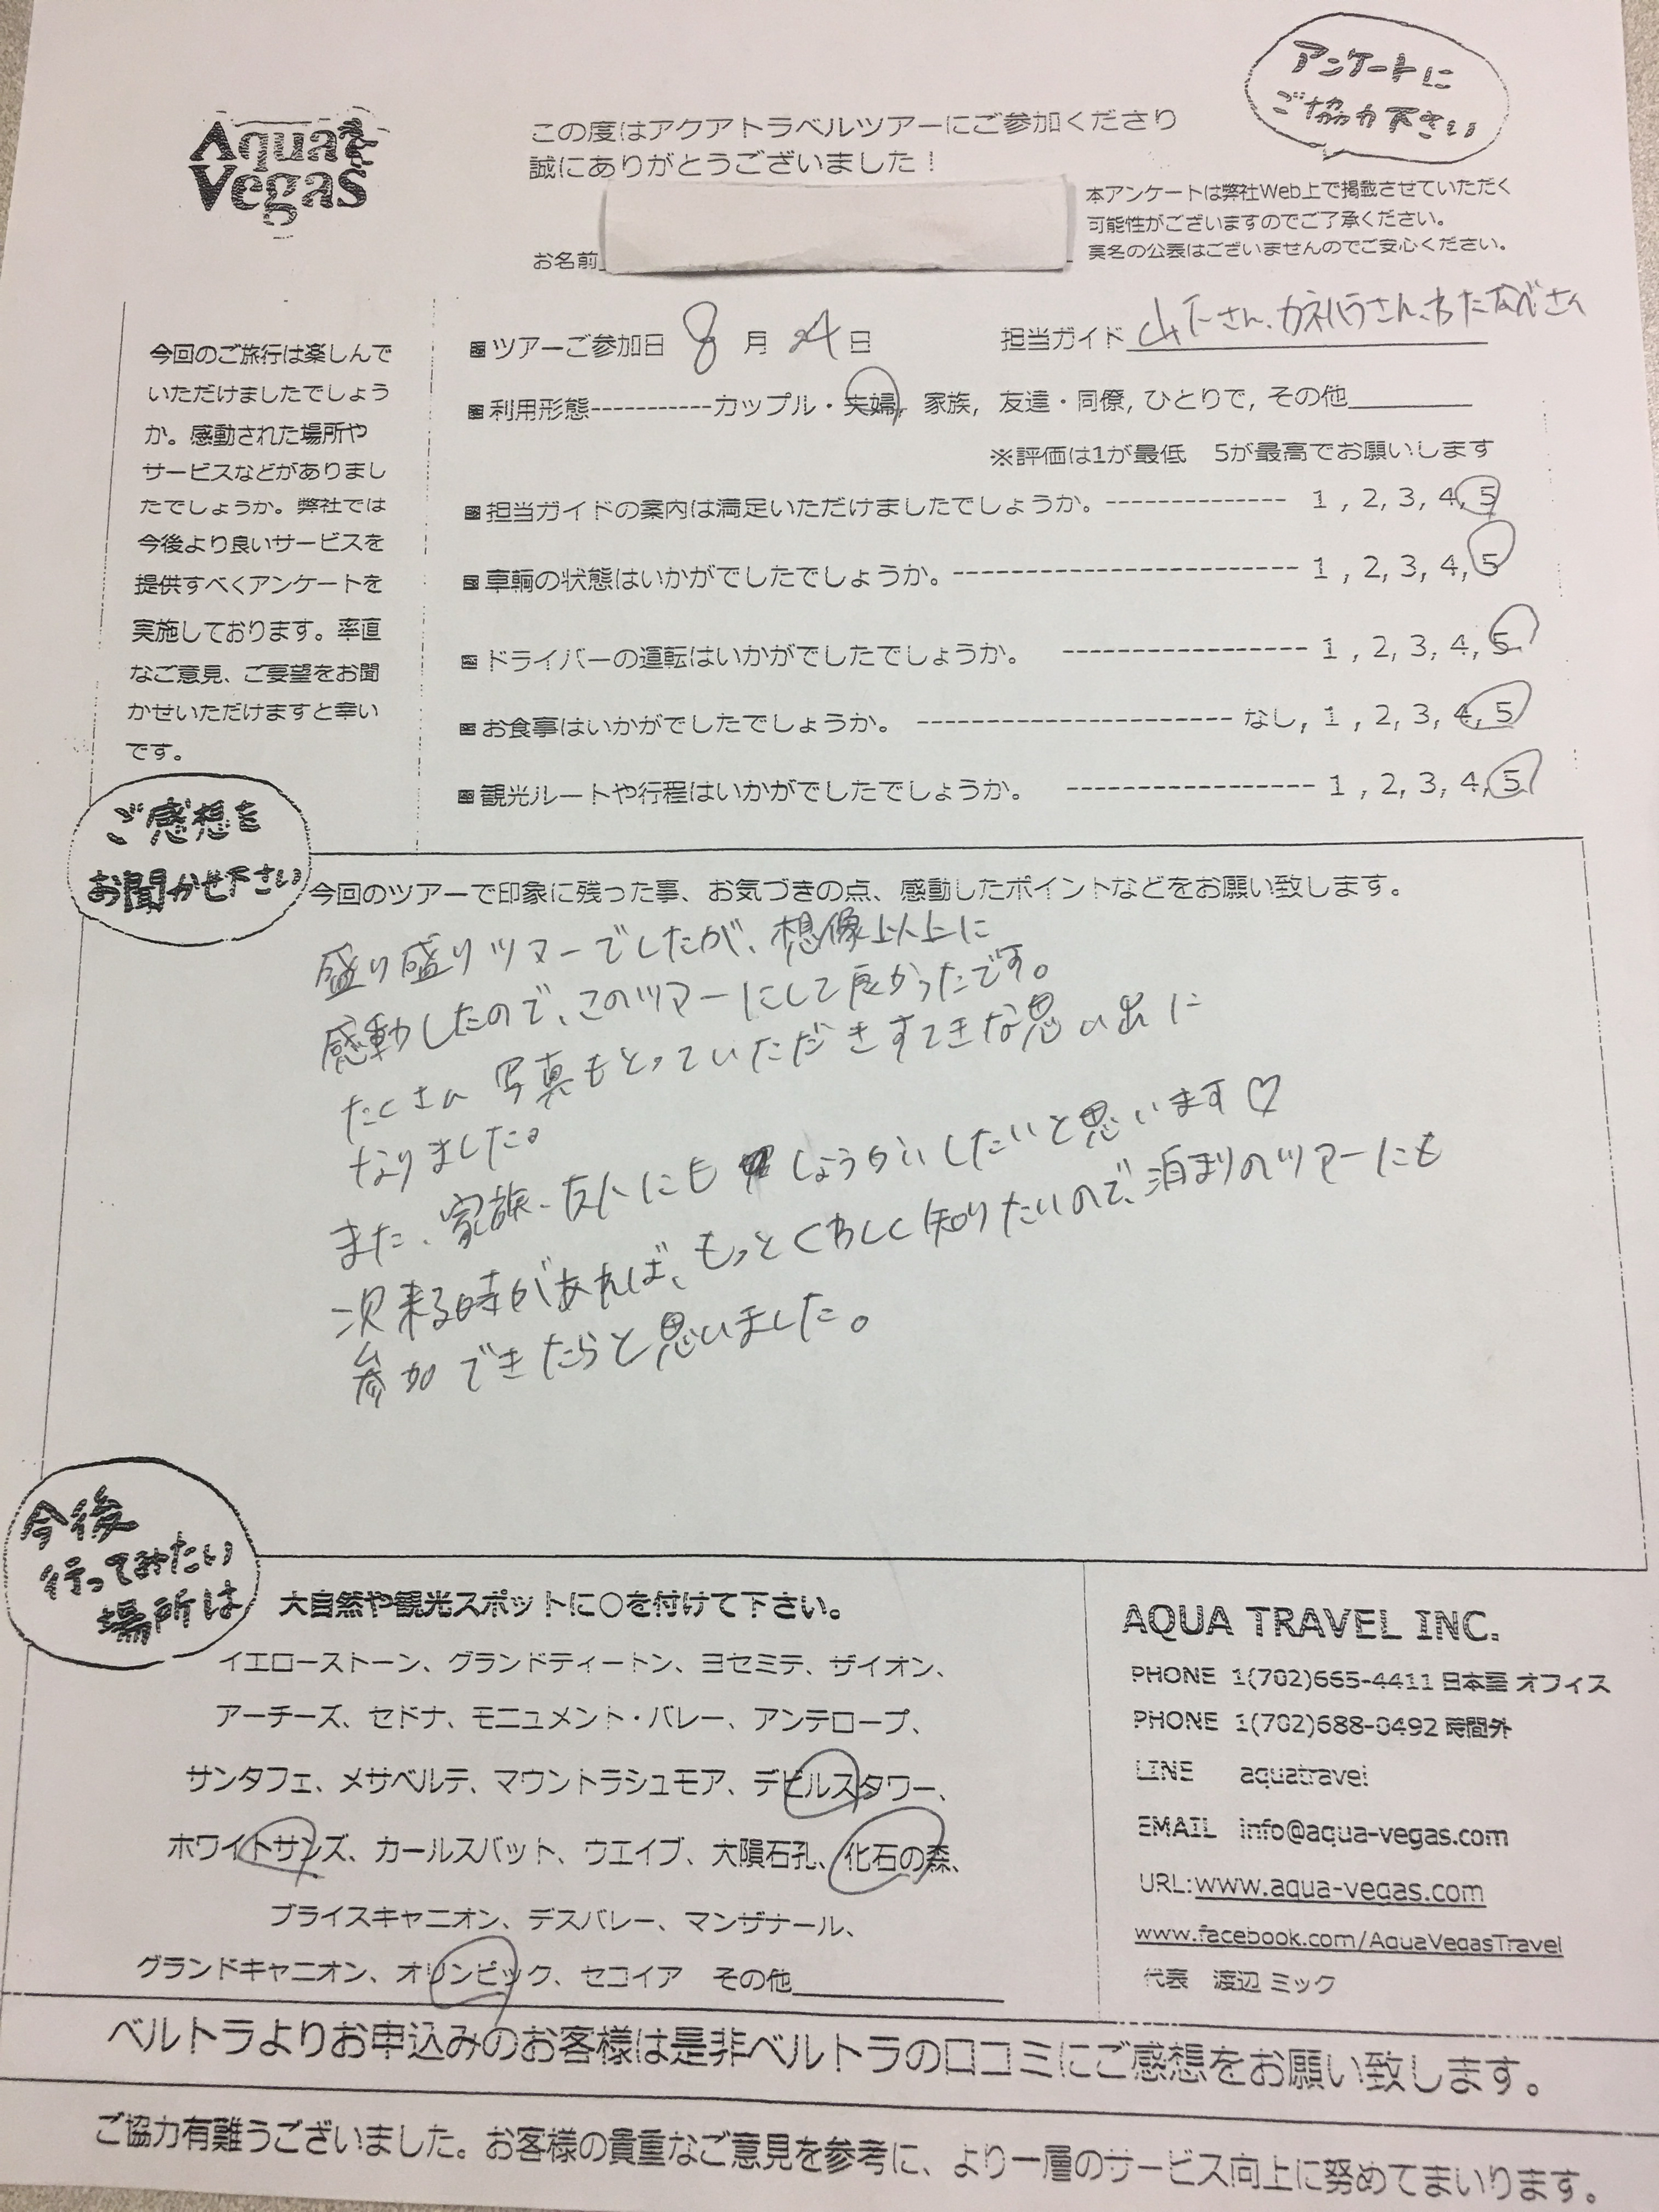 アンケートに
ご協力下さい
Aqua
Vegas
この度はアクアトラベルツアーにご参加くださり
誠にありがとうございました！
本アンケートは弊社Web上で掲載させていただく
可能性がございますのでご了承ください。
実名の公表はございませんのでご安心ください。
お名前
今回のご旅行は楽しんで
いただけましたでしょう
か。感動された場所や
サービスなどがありまし
たでしょうか。弊社では
今後より良いサービスを
提供すべくアンケートを
実施しております。率直
なご意見、ご要望をお聞
かせいただけますと幸い
です。
■ツアーご参加日 8 月 4 日 担当ガイド 山下さん、カネハラさん、わたなべさん
■利用形態-----------カップル・夫婦, 家族, 友達・同僚, ひとりで, その他
※評価は1が最低 5が最高でお願いします
■担当ガイドの案内は満足いただけましたでしょうか。-------------- 1 , 2, 3, 4, 5
■車輌の状態はいかがでしたでしょうか。------------------------ 1 , 2, 3, 4, 5
■ドライバーの運転はいかがでしたでしょうか。 ----------------- 1 , 2, 3, 4, 5
■お食事はいかがでしたでしょうか。 ---------------------- なし, 1 , 2, 3, 4, 5
■観光ルートや行程はいかがでしたでしょうか。 ------------------ 1 , 2, 3, 4, 5
ご感想を
お聞かせ下さい
今回のツアーで印象に残った事、お気づきの点、感動したポイントなどをお願い致します。
盛り盛りツアーでしたが、想像以上に
感動したので、このツアーにして良かったです。
たくさん写真もとっていただきすてきな思い出に
なりました。
また、家族、友人にもしょうかいしたいと思います♡
次来る時があれば、もっとくわしく知りたいので、泊まりのツアーにも
参加できたらと思いました。
今後
行ってみたい
場所は
大自然や観光スポットに○を付けて下さい。
イエローストーン、グランドティートン、ヨセミテ、ザイオン、
アーチーズ、セドナ、モニュメント・バレー、アンテロープ、
サンタフェ、メサベルテ、マウントラシュモア、デビルスタワー、
ホワイトサンズ、カールスバット、ウエイブ、大隕石孔、化石の森、
ブライスキャニオン、デスバレー、マンザナール、
グランドキャニオン、オリンピック、セコイア その他
AQUA TRAVEL INC.
PHONE 1(702)665-4411 日本語 オフィス
PHONE 1(702)688-0492 時間外
LINE aquatravel
EMAIL info@aqua-vegas.com
URL:www.aqua-vegas.com
www.facebook.com/AquaVegasTravel
代表 渡辺 ミック
ベルトラよりお申込みのお客様は是非ベルトラの口コミにご感想をお願い致します。
ご協力有難うございました。お客様の貴重なご意見を参考に、より一層のサービス向上に努めてまいります。